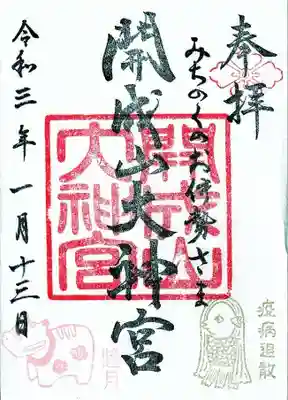 奉拝
みちのくのお伊勢さま
開成山大神宮
令和三年一月十三日
開成山
大神宮
疫病退散